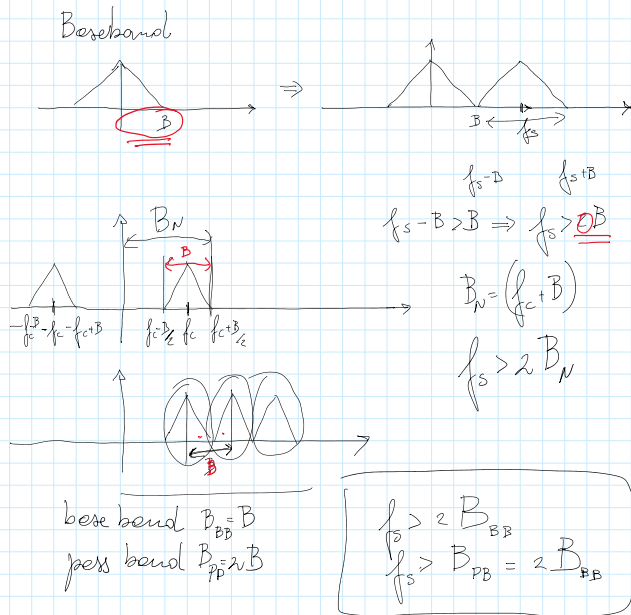 Baseband
⇒
B
B
fs
fs-B
fs+B
fs-B>B ⇒ fs>2B
BN
B
-fc-B
-fc
-fc+B
fc-B/2
fc
fc+B/2
BN=(fc+B)
fs>2BN
B
base band BBB=B
pass band BPB=2B
fs>2BBB
fs>BPB=2BBB